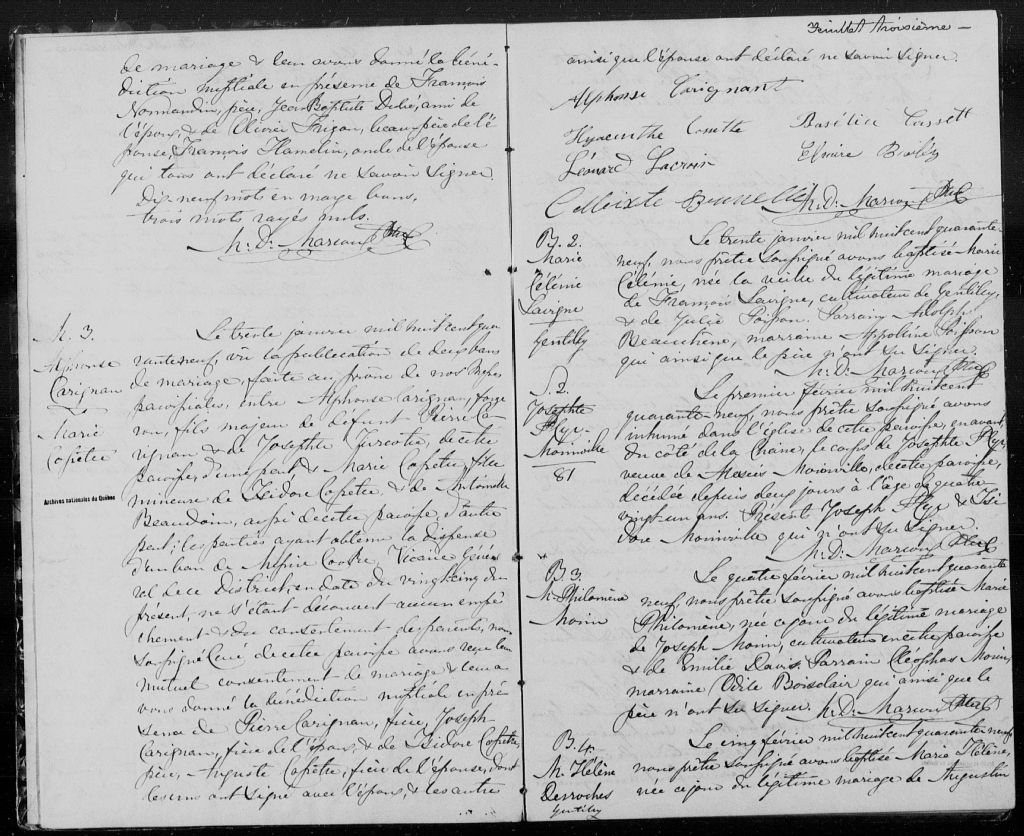 de mariage & leur avons donné la béné-
diction nuptiale en présence de François
Normandin, père, Jean Baptiste Dubé, ami de
l'époux, & de Olivier Frigon, beau-père de l'é
pouse, François Hamelin, oncle de l'épouse
qui tous ont déclaré ne savoir signer.
Dix-neuf mots en marge bons,
trois mots rayés nuls.
M. D. Marcoux Ptre
M. 3.
Alphonse
Carignan
&
Marie
Copêtre
Le trente janvier mil huit cent qua
rante neuf, vu la publication de deux bans
de mariage, faite au prône de nos Messes
paroissiales, entre Alphonse Carignan, forge
ron, fils majeur de défunt Pierre Ca-
rignan & de Josephte Turcotte, de cette
paroisse, d'une part & Marie Copêtre, fille
mineure de Isidore Copêtre, & de Antoinette
Beaudoin, aussi de cette paroisse, d'autre
part; les parties ayant obtenu la dispense
d'un ban de Messire Cooke, Vicaire Géné
ral de ce District, en date du vingt cinq du
présent, ne s'étant découvert aucun empê
chement & du consentement des parents, nous
soussigné Curé de cette paroisse avons reçu leur
mutuel consentement de mariage, & leur a
vons donné la bénédiction nuptiale en pré
sence de Pierre Carignan, frère, Joseph
Carignan, frère de l'époux, & de Isidore Copêtre,
père, Auguste Copêtre, frère de l'épouse, dont
les uns ont signé avec l'époux, & les autres
Archives nationales du Québec
Feuillet troisième —
ainsi que l'épouse ont déclaré ne savoir signer.
Alphonse Carignant
Hyacinthe Cossette Basilice Cossett
Léonard Lacroix Elmire
Calleixte M. D. Marcoux Ptre
B. 2.
Marie
Célénie
Lavigne
Gentilly
Le trente janvier mil huit cent quarante-
neuf, nous prêtre soussigné avons baptisé Marie
Célénie, née la veille du légitime mariage
de François Lavigne, cultivateur de Gentilly,
& de Julie Poisson. Parrain Adolph
Beauchène, marraine Appoline Poisson
qui ainsi que le père n'ont su signer.
M. D. Marcoux Ptre
S. 2.
Josephte
Alye.
Moinville
81
Le premier février mil huit cent
quarante-neuf, nous prêtre soussigné avons
inhumé dans l'église de cette paroisse, en avant,
du côté de la Chaire, le corps de Josephte Alye,
veuve de Alexis Moinville, de cette paroisse,
décédée depuis deux jours à l'âge de quatre
vingt-un ans. Présent Joseph Alye & Isi
dore Moinville qui n'ont su signer.
M. D. Marcoux Ptre
B. 3.
M. Philomène
Morin
Le quatre février mil huit cent quarante
neuf, nous prêtre soussigné avons baptisé Marie
Philomène, née ce jour du légitime mariage
de Joseph Morin, cultivateur en cette paroisse
& de Emilie Davis. Parrain Cléophas Morin,
marraine Odile Boisclair qui ainsi que le
père n'ont su signer. M. D. Marcoux Ptre
B. 4.
M. Hélène
Desroches
Gentilly
Le cinq février mil huit cent quarante neuf,
nous prêtre soussigné avons baptisé Marie Hélène,
née ce jour du légitime mariage de Augustin